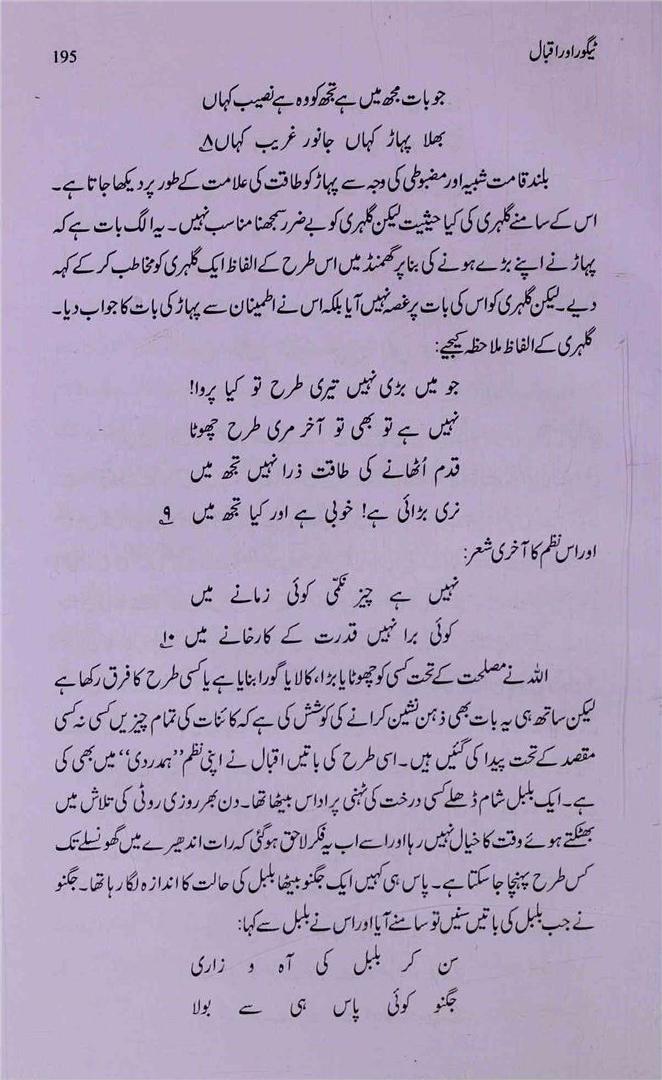 ٹیگور اور اقبال 195
جو بات مجھ میں ہے تجھ کو وہ ہے نصیب کہاں
بھلا پہاڑ کہاں جانور غریب کہاں ۸
بلند قامت شبیہ اور مضبوطی کی وجہ سے پہاڑ کو طاقت کی علامت کے طور پر دیکھا جاتا ہے۔
اس کے سامنے گلہری کی کیا حیثیت لیکن گلہری کو بے ضرر سمجھنا مناسب نہیں۔ یہ الگ بات ہے کہ
پہاڑ نے اپنے بڑے ہونے کی بنا پر گھمنڈ میں اس طرح کے الفاظ ایک گلہری کو مخاطب کر کے کہہ
دیے۔ لیکن گلہری کو اس کی بات پر غصہ نہیں آیا بلکہ اس نے اطمینان سے پہاڑ کی بات کا جواب دیا۔
گلہری کے الفاظ ملاحظہ کیجیے:
جو میں بڑی نہیں تیری طرح تو کیا پروا!
نہیں ہے تو بھی تو آخر مری طرح چھوٹا
قدم اُٹھانے کی طاقت ذرا نہیں تجھ میں
نری بڑائی ہے! خوبی ہے اور کیا تجھ میں ۹
اور اس نظم کا آخری شعر:
نہیں ہے چیز نکمّی کوئی زمانے میں
کوئی برا نہیں قدرت کے کارخانے میں ۱۰
اللہ نے مصلحت کے تحت کسی کو چھوٹا یا بڑا، کالا یا گورا بنایا ہے یا کسی طرح کا فرق رکھا ہے
لیکن ساتھ ہی یہ بات بھی ذہن نشین کرانے کی کوشش کی ہے کہ کائنات کی تمام چیزیں کسی نہ کسی
مقصد کے تحت پیدا کی گئیں ہیں۔ اسی طرح کی باتیں اقبال نے اپنی نظم ’’ہمدردی‘‘ میں بھی کی
ہے۔ ایک بلبل شام ڈھلے کسی درخت کی ٹہنی پر اداس بیٹھا تھا۔ دن بھر روزی روٹی کی تلاش میں
بھٹکتے ہوئے وقت کا خیال نہیں رہا اور اسے اب یہ فکر لاحق ہو گئی کہ رات اندھیرے میں گھونسلے تک
کس طرح پہنچا جا سکتا ہے۔ پاس ہی کہیں ایک جگنو بیٹھا بلبل کی حالت کا اندازہ لگا رہا تھا۔ جگنو
نے جب بلبل کی باتیں سنیں تو سامنے آیا اور اس نے بلبل سے کہا:
سن کر بلبل کی آہ و زاری
جگنو کوئی پاس ہی سے بولا